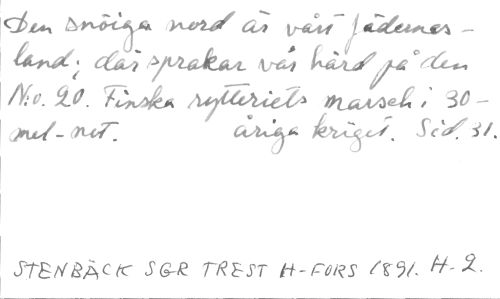 Den snöiga nord är vårt fädernes-
land; där sprakar vår härd på den
N:o. 20. Finska rytteriets marsch i 30-
mel-not. åriga kriget. Sid. 31.
STENBÄCK SGR TREST H-FORS 1891. H-2.